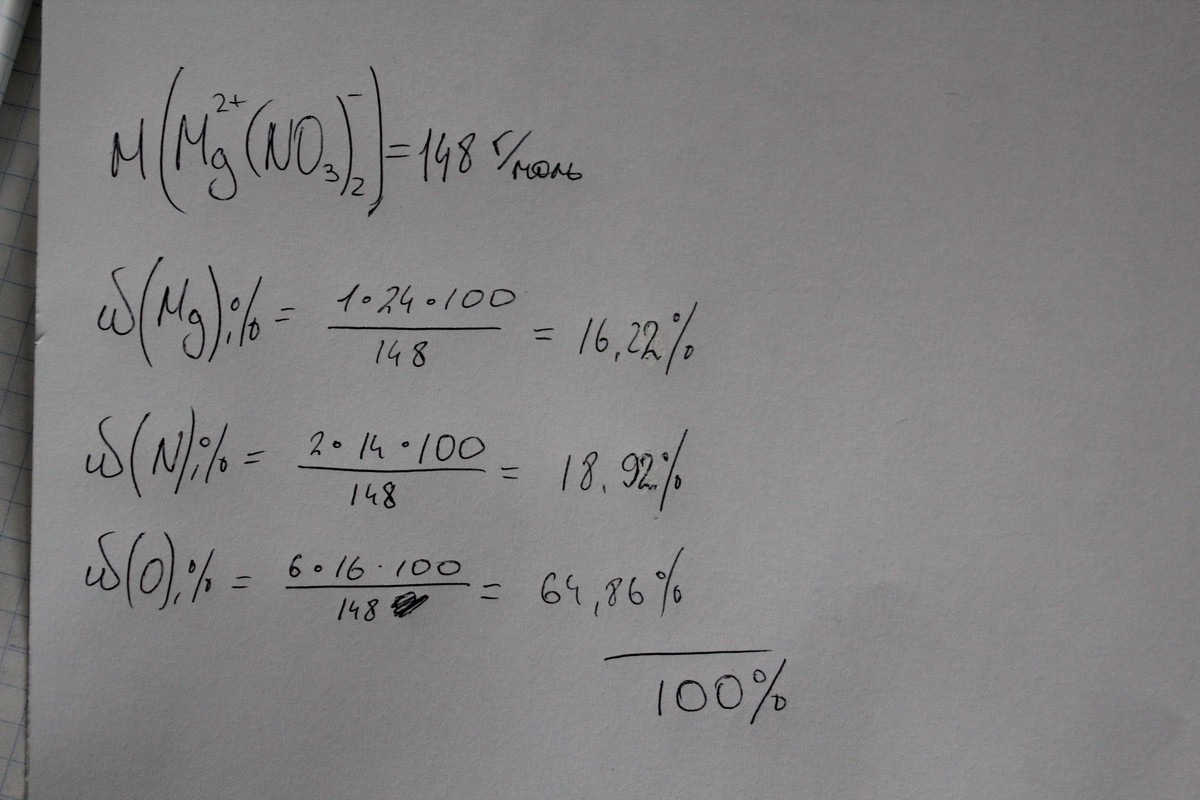 M(Mg²⁺(NO₃)₂⁻) = 148 г/моль
ω(Mg),% = 1·24·100 / 148 = 16,22%
ω(N),% = 2·14·100 / 148 = 18,92%
ω(O),% = 6·16·100 / 148 = 64,86%
100%